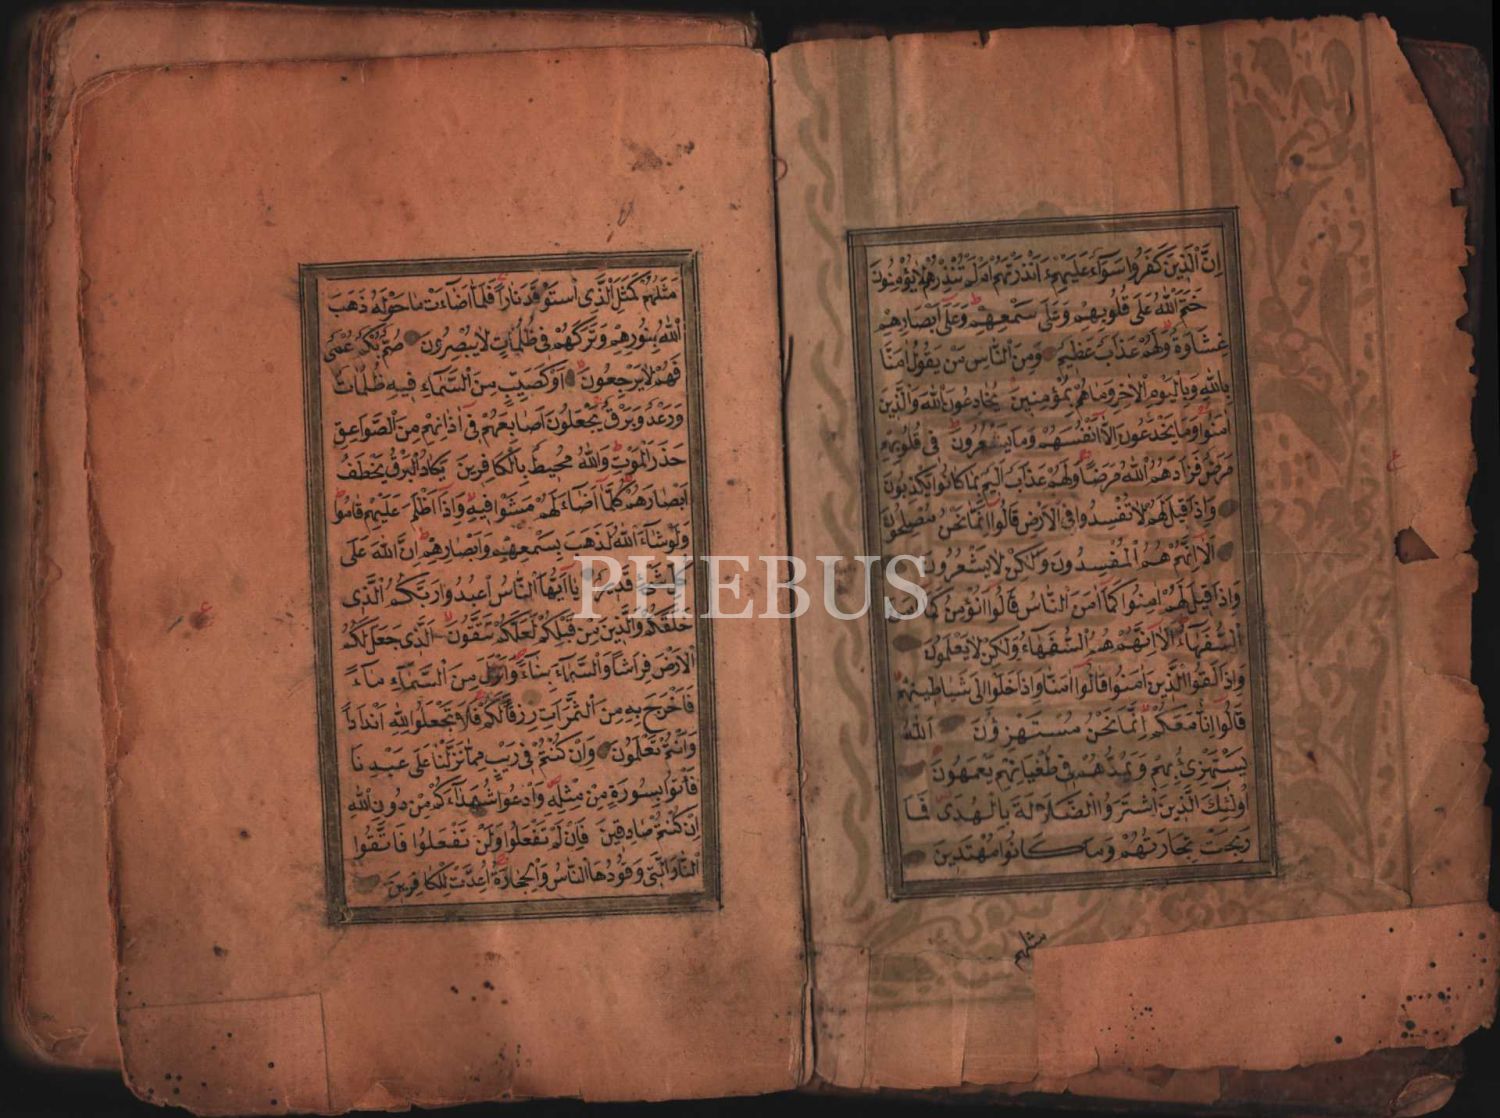 إن الذين كفروا سواء عليهم ءأنذرتهم أم لم تنذرهم لا يؤمنون
ختم الله على قلوبهم وعلى سمعهم وعلى أبصارهم
غشاوة ولهم عذاب عظيم ومن الناس من يقول آمنا
بالله وباليوم الآخر وما هم بمؤمنين يخادعون الله والذين
آمنوا وما يخدعون إلا أنفسهم وما يشعرون في قلوبهم
مرض فزادهم الله مرضا ولهم عذاب أليم بما كانوا يكذبون
وإذا قيل لهم لا تفسدوا في الأرض قالوا إنما نحن مصلحون
ألا إنهم هم المفسدون ولكن لا يشعرون
وإذا قيل لهم آمنوا كما آمن الناس قالوا أنؤمن كما
السفهاء ألا إنهم هم السفهاء ولكن لا يعلمون
وإذا لقوا الذين آمنوا قالوا آمنا وإذا خلوا إلى شياطينهم
قالوا إنا معكم إنما نحن مستهزؤن الله
يستهزئ بهم ويمدهم في طغيانهم يعمهون
أولئك الذين اشتروا الضلالة بالهدى فما
ربحت تجارتهم وما كانوا مهتدين
مثلهم
مثلهم كمثل الذي استوقد نارا فلما أضاءت ما حوله ذهب
الله بنورهم وتركهم في ظلمات لا يبصرون صم بكم عمي
فهم لا يرجعون أو كصيب من السماء فيه ظلمات
ورعد وبرق يجعلون أصابعهم في آذانهم من الصواعق
حذر الموت والله محيط بالكافرين يكاد البرق يخطف
أبصارهم كلما أضاء لهم مشوا فيه وإذا أظلم عليهم قاموا
ولو شاء الله لذهب بسمعهم وأبصارهم إن الله على
كل شيء قدير يا أيها الناس اعبدوا ربكم الذي
خلقكم والذين من قبلكم لعلكم تتقون الذي جعل لكم
الأرض فراشا والسماء بناء وأنزل من السماء ماء
فأخرج به من الثمرات رزقا لكم فلا تجعلوا لله أندادا
وأنتم تعلمون وإن كنتم في ريب مما نزلنا على عبدنا
فأتوا بسورة من مثله وادعوا شهداءكم من دون الله
إن كنتم صادقين فإن لم تفعلوا ولن تفعلوا فاتقوا
النار التي وقودها الناس والحجارة أعدت للكافرين
PHEBUS